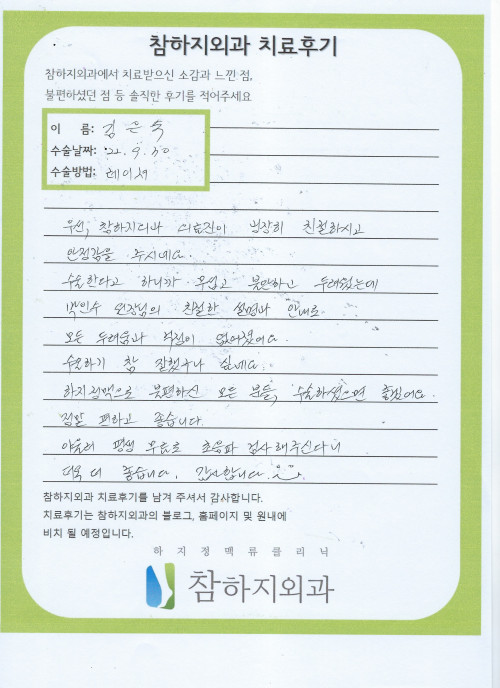 참하지외과 치료후기
참하지외과에서 치료받으신 소감과 느낀 점,
불편하셨던 점 등 솔직한 후기를 적어주세요
이 름: 김은숙
수술날짜: 22. 9. 30
수술방법: 레이저
우선, 참하지외과 의료진이 굉장히 친절하시고
안정감을 주시네요.
수술한다고 하니까 무섭고 불안하고 두려웠는데
박인수 원장님의 친절한 설명과 안내로
모든 두려움과 걱정이 없어졌어요.
수술하기 참 잘했구나 싶네요.
하지정맥으로 불편하신 모든 분들, 수술하셨으면 좋겠어요.
정말 편하고 좋습니다.
아울러 평생 무료로 초음파 검사해주신다니
더욱 더 좋습니다. 감사합니다.
참하지외과 치료후기를 남겨 주셔서 감사합니다.
치료후기는 참하지외과의 블로그, 홈페이지 및 원내에
비치 될 예정입니다.
하지정맥류클리닉
참하지외과